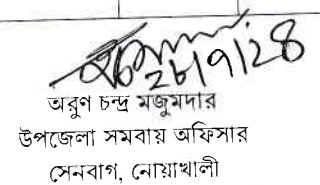 অরুণ চন্দ্র মজুমদার
উপজেলা সমবায় অফিসার
সেনবাগ, নোয়াখালী